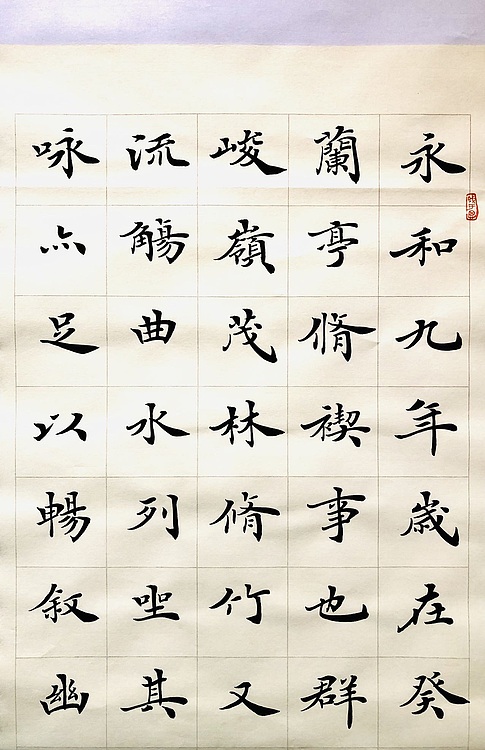 永和九年歳在癸
蘭亭脩禊事也群
峻嶺茂林脩竹又
流觴曲水列坐其
咏亦足以暢叙幽